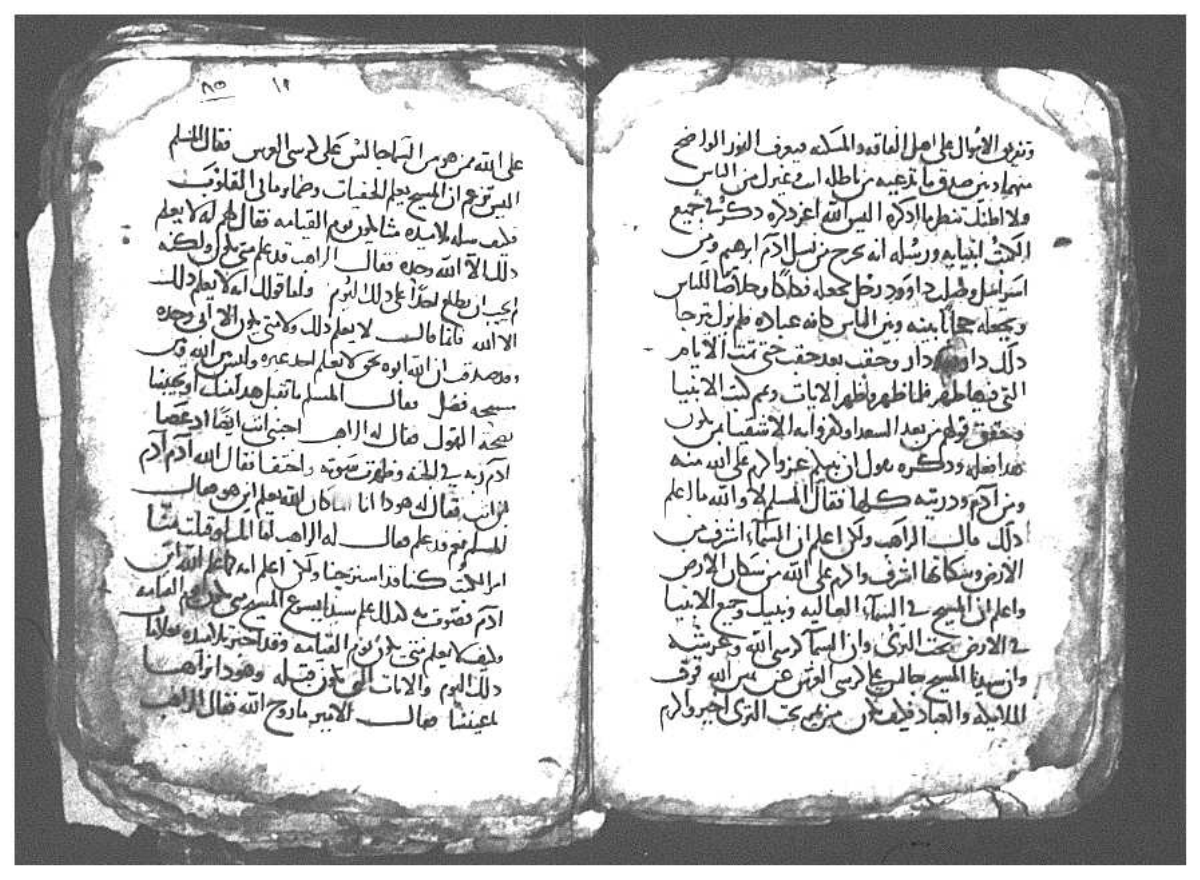 وتفريق الاموال على اهل الفاقه والمسكنه فيعرف النور الواضح
منهما وبين صدق ما تدعيه من باطله انت وغيرك من الناس
ولا اظنك تنظر ما اذكره اليس الله اعز ذكره ذكر في جميع
الكتب انبيايه ورسله انه يخرج من نسل ادم ابرهيم ومن
اسراييل وصلب داوود رجل يجعله وخلاصا للناس
ويجعله حجابا بينه وبين الناس كافه عباده فلم يزل يترجا
ذلك دار دار وحقب بعد حقب حتى تمت الايام
التي فيها ظهر فلما ظهر وظهر الايات وتم كتب الانبيا
وتحقق قولهم من بعد السعدا وكفروا به الاشقيا من يكون
هذا فعله وذكره يقول ان نبيكم عز واكرم على الله منه
ومن آدم وذريته كلها فقال المسلم لا والله ما اعلم
ذلك قال الراهب ولكن اعلم ان السمآء اشرف من
الارض وسكانها اشرف واكرم على الله من سكان الارض
واعلم ان المسيح في السمآء العاليه ونبيك وجميع الانبيا
في الارض تحت الثرى وان السما كرسي الله وعرشه
وان سيدنا المسيح جالس على كرسي العرش عن يمين الله فوق
الملايكه والعباد فكيف يكون من هو تحت الثرى اخير واكرم
٨٥ ١٩
على الله ممن هو في السما جالس على كرسي العرش فقال المسلم
اليس تزعم ان المسيح يعلم الخفيات وضماير ما في القلوب
فكيف سله تلاميذه متا يكون يوم القيامه فقال لهم له لا يعلم
ذلك الا الله وحده فقال الراهب قد علم متى يكون ولكنه
لم يجب ان يطلع احدا على ذلك اليوم واما قولك انه لا يعلم ذلك
الا الله فانما قال لا يعلم ذلك ولا متى يكون الا ابي وحده
وقد صدق ان الله ابوه بحق لا يعلم احد غيره وليس الله غير
مسيحه فصل فقال المسلم ما تقبل هذا منك او تجيبنا
بصحة القول فقال له الراهب اجبني انت ايضا اذ عصا
آدم ربه في الجنه وظهرت سوته واختفا فقال الله آدم آدم
اين انت فقال له هوذا انا اما كان الله يعلم اين هو قال
المسلم نعم قد علم فقال له الراهب
امر الكتب كنا قد استرحنا ولكن اعلم انه كما علم الله اين
آدم كذلك علم سيدنا يسوع المسيح متى تكون يوم القيامه
وكيف لا يعلم متى يكون يوم القيامه وقد اخبر تلاميذه بعلامات
ذلك اليوم والايات التي تكون قبله وهوذا نراها
باعيننا قال الامير يا روح الله فقال الراهب